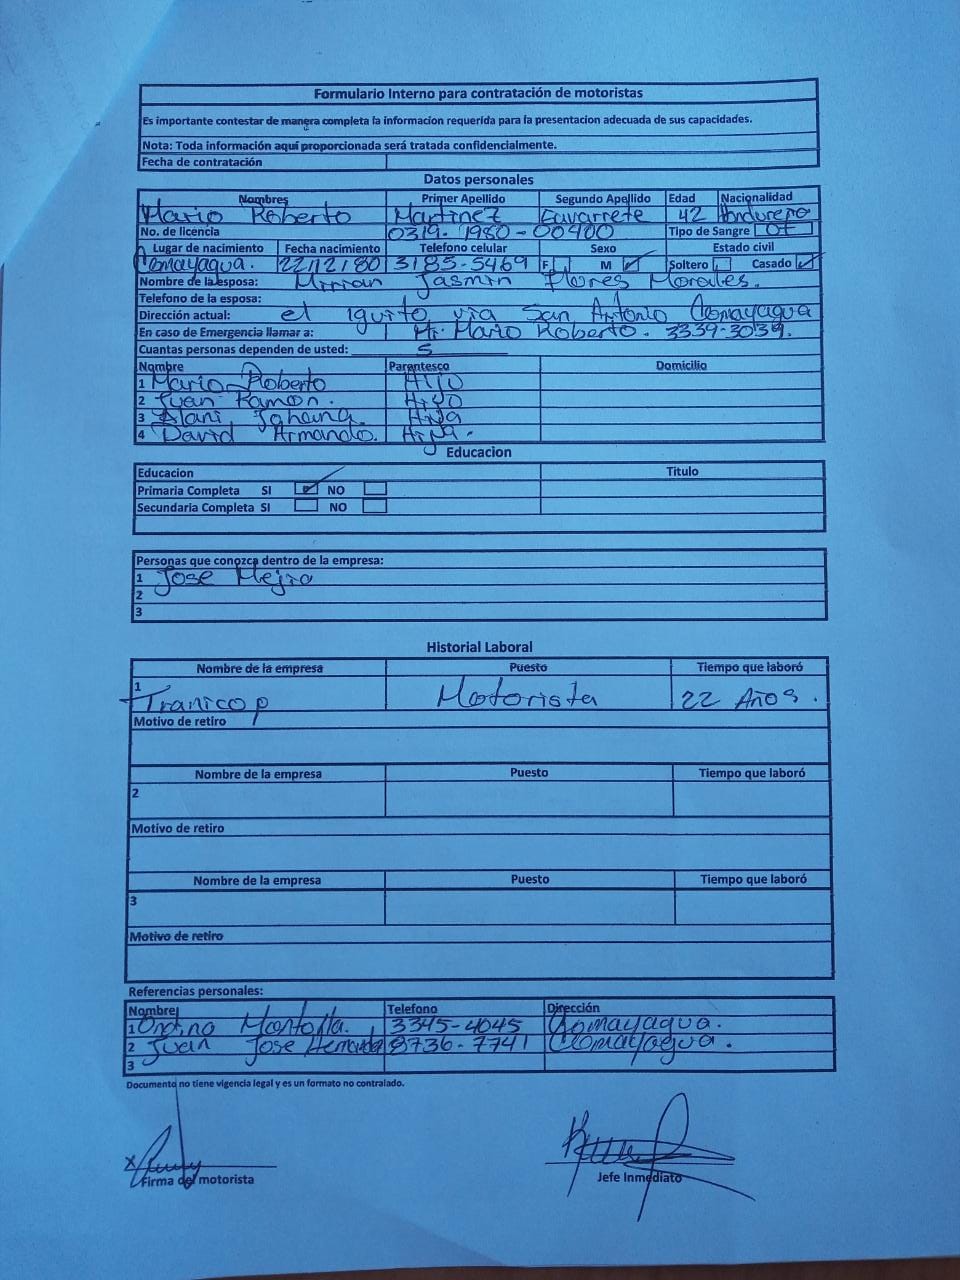 Formulario Interno para contratación de motoristas
Es importante contestar de manera completa la informacion requerida para la presentacion adecuada de sus capacidades.
Nota: Toda información aquí proporcionada será tratada confidencialmente.
Fecha de contratación
Datos personales
Nombres Primer Apellido Segundo Apellido Edad Nacionalidad
Mario Roberto Martinez Gavarrete 42 Hondureño
No. de licencia 0319-1980-00400 Tipo de Sangre O+
Lugar de nacimiento Fecha nacimiento Telefono celular Sexo Estado civil
Comayagua. 22/12/80 3185-5469 F M ✓ Soltero Casado ✓
Nombre de la esposa: Mirian Jasmin Flores Morales.
Telefono de la esposa:
Dirección actual: el Iguito, via San Antonio Comayagua
En caso de Emergencia llamar a: Mario Roberto. 3339-3039.
Cuantas personas dependen de usted: 5
Nombre Parentesco Domicilio
1 Mario Roberto Hijo
2 Juan Ramon. Hijo
3 Alani Hija
4 David Armando. Hija.
Educacion
Educacion Titulo
Primaria Completa SI ✓ NO
Secundaria Completa SI NO
Personas que conozca dentro de la empresa:
1 Jose Mejia
2
3
Historial Laboral
Nombre de la empresa Puesto Tiempo que laboró
1 Tranicop Motorista 22 Años.
Motivo de retiro
Nombre de la empresa Puesto Tiempo que laboró
2
Motivo de retiro
Nombre de la empresa Puesto Tiempo que laboró
3
Motivo de retiro
Referencias personales:
Nombre Telefono Dirección
1 3345-4045 Comayagua.
2 Juan Jose Hernandez 8736-7741 Comayagua.
3
Documento no tiene vigencia legal y es un formato no contralado.
Firma del motorista
Jefe Inmediato